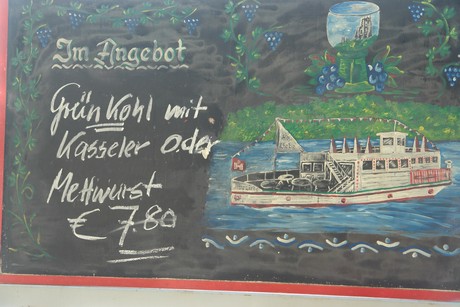 Im Angebot
Grünkohl mit
Kasseler oder
Mettwurst
€ 7.80